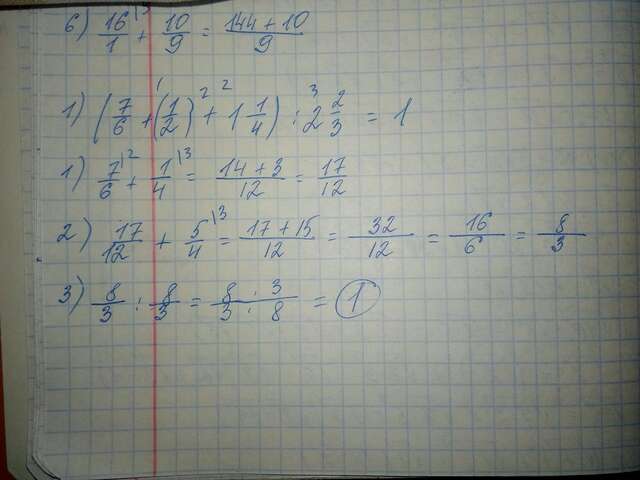 6) 16/1 |9 + 10/9 = 144 + 10/9
1) (7/6 + (1/2)² + 1 1/4) : 2 2/3 = 1
1) 7/6 |2 + 1/4 |3 = 14 + 3/12 = 17/12
2) 17/12 + 5/4 |3 = 17 + 15/12 = 32/12 = 16/6 = 8/3
3) 8/3 : 8/3 = 8 · 3/3 · 8 = 1